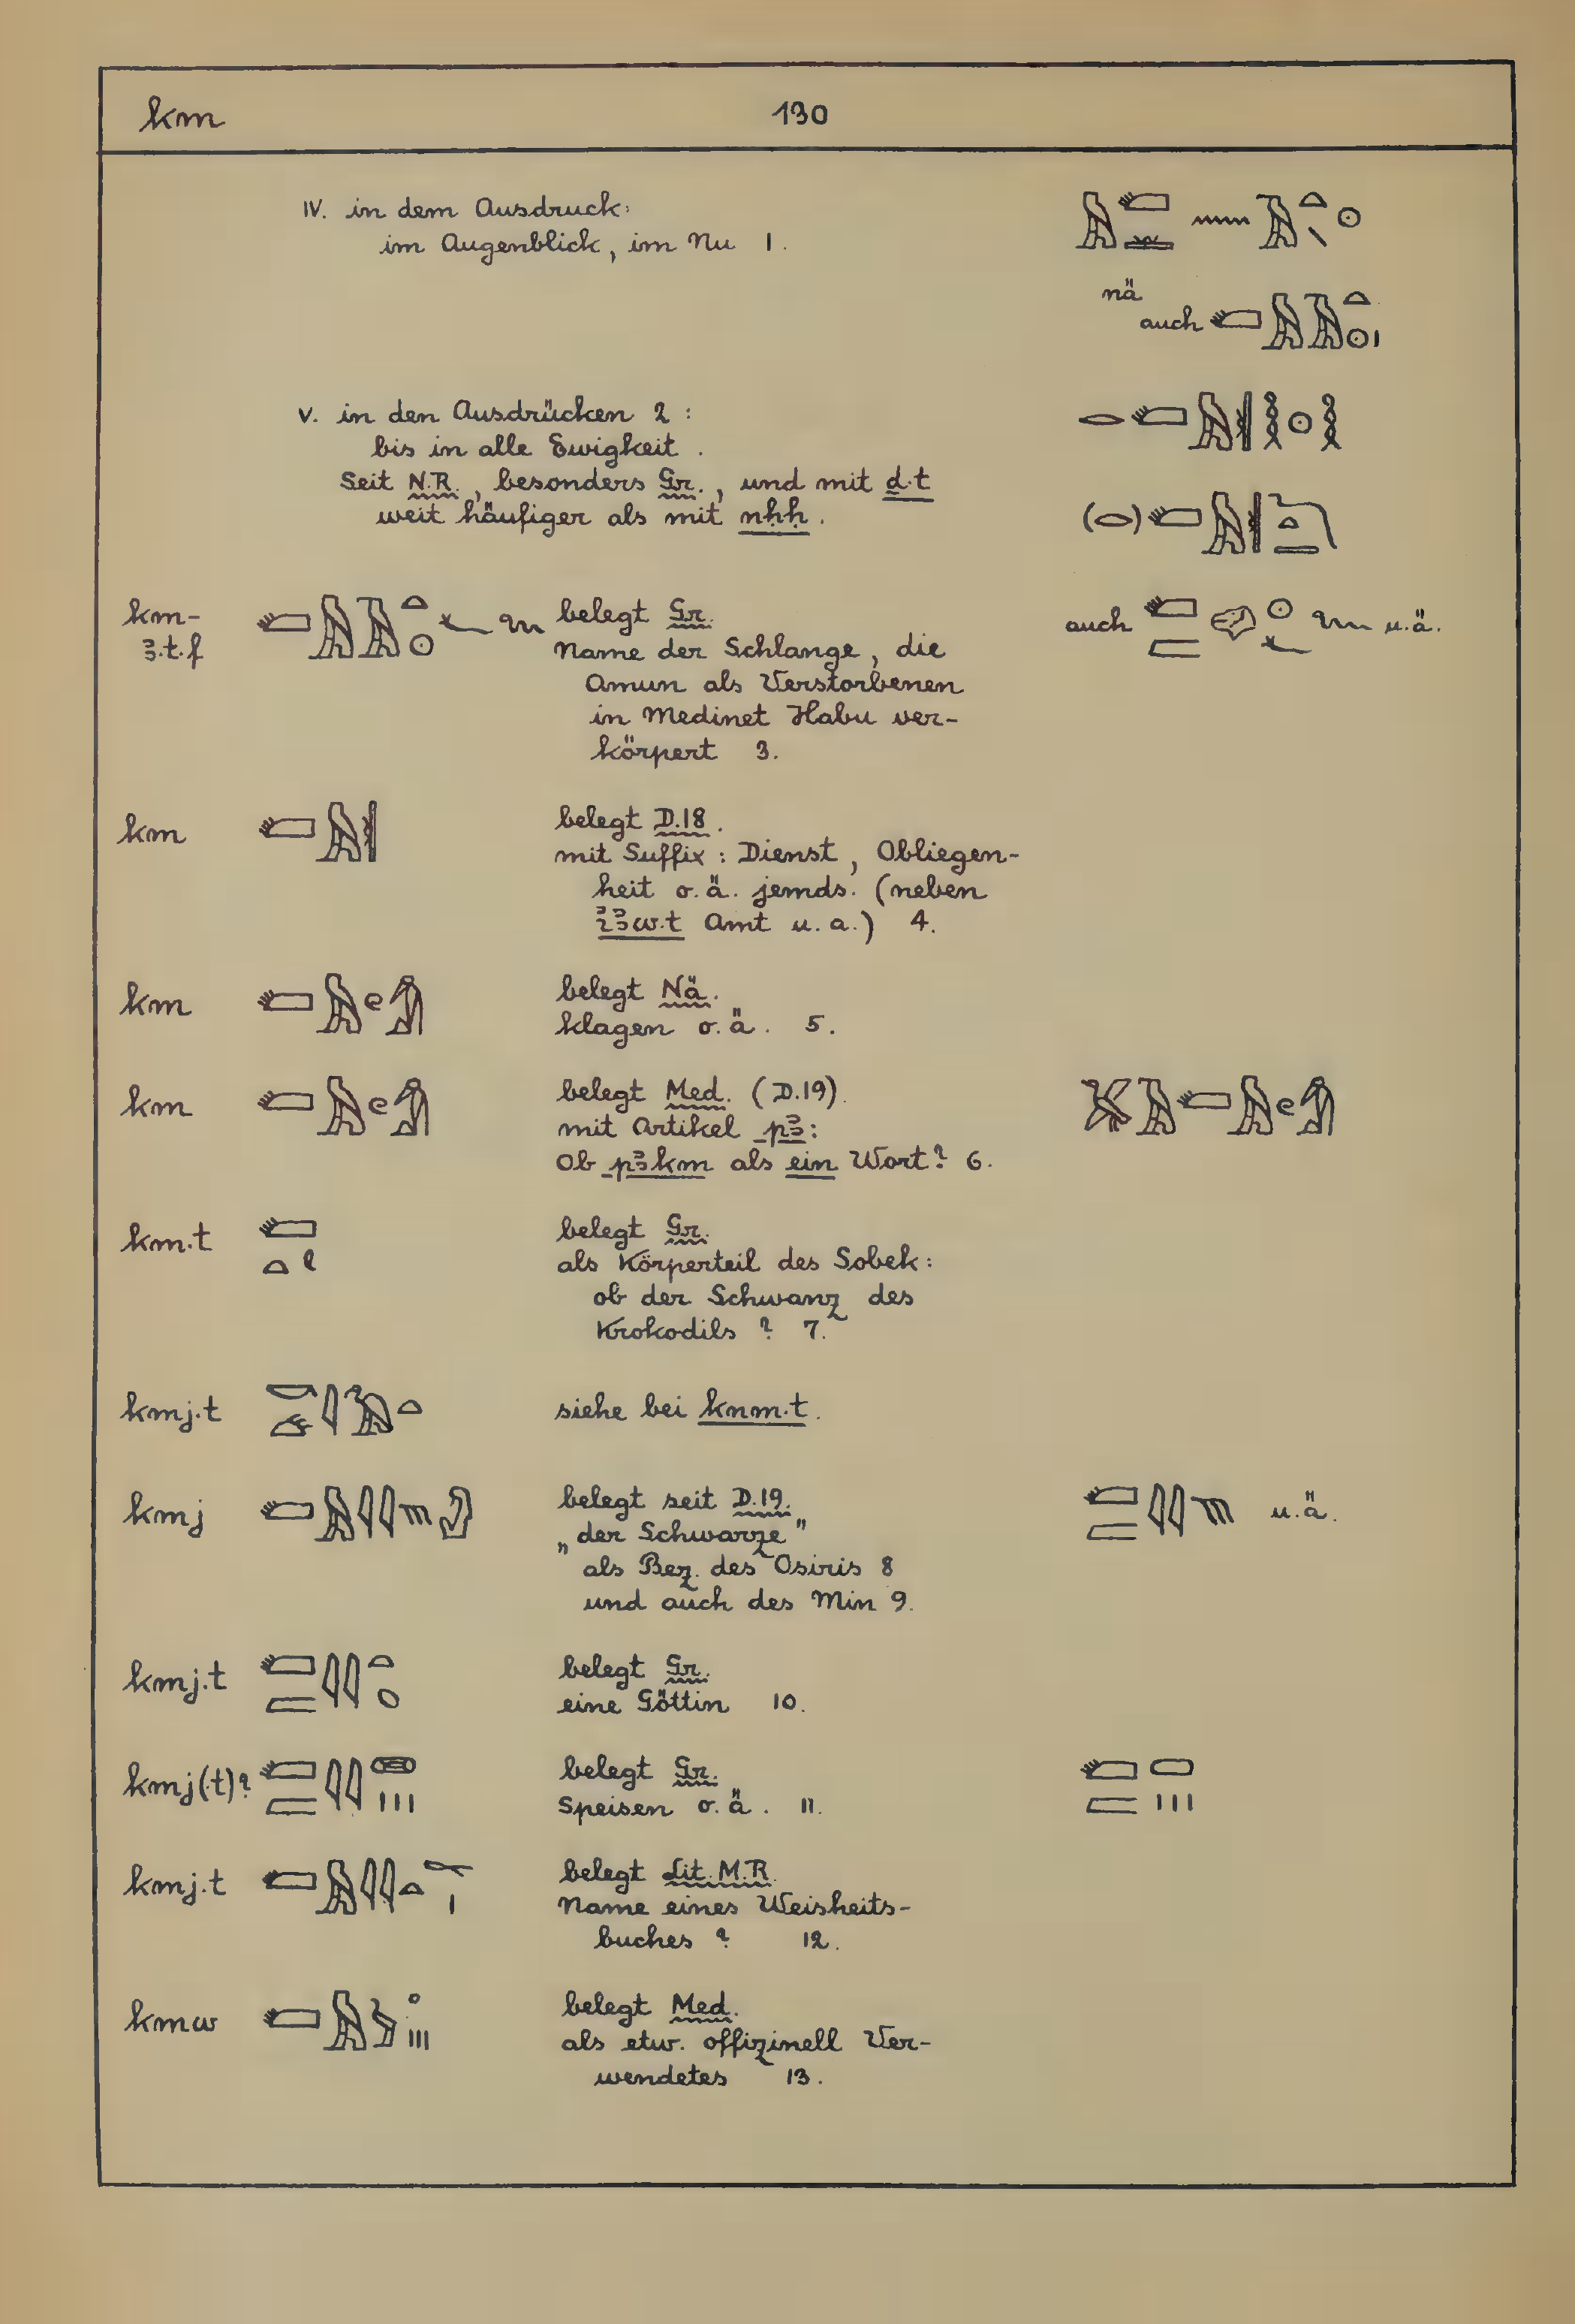 km 130
IV. in dem Ausdruck:
im Augenblick, im Nu 1.
nä
auch
V. in den Ausdrücken 2 :
bis in alle Ewigkeit.
Seit N.R., besonders Gr., und mit ḏ.t
weit häufiger als mit nḥḥ.
km-
ꜣ.t.f
belegt Gr.
auch u.ä.
Name der Schlange, die
Amun als Verstorbenen
in Medinet Habu ver-
körpert 3.
km belegt D.18.
mit Suffix : Dienst, Obliegen-
heit o.ä. jemds. (neben
iꜣw.t Amt u.a.) 4.
km belegt Nä.
klagen o.ä. 5.
km belegt Med. (D.19).
mit Artikel pꜣ:
Ob pꜣkm als ein Wort? 6.
km.t belegt Gr.
als Körperteil des Sobek:
ob der Schwanz des
Krokodils ? 7.
kmj.t siehe bei knm.t.
kmj belegt seit D.19. u.ä.
„der Schwarze"
als Bez. des Osiris 8
und auch des Min 9.
kmj.t belegt Gr.
eine Göttin 10.
kmj(.t)? belegt Gr.
Speisen o.ä. 11.
kmj.t belegt Lit. M.R.
Name eines Weisheits-
buches ? 12.
kmw belegt Med.
als etw. offizinell Ver-
wendetes 13.